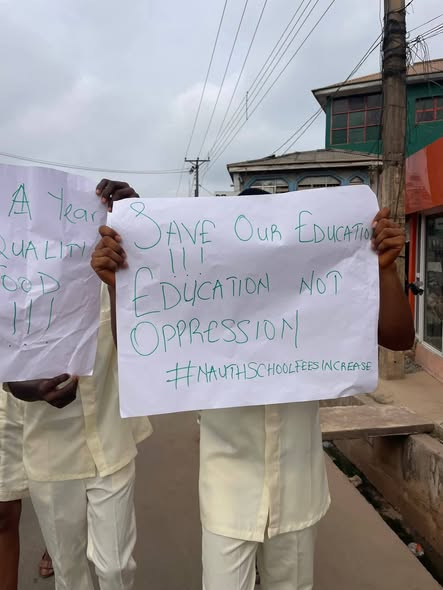 A Year
QUALITI
FOOD
!!!
SAVE OUR EDUCATION
!!!
EDUCATION NOT
OPPRESSION
#NAUTHSCHOOLFEESINCREASE